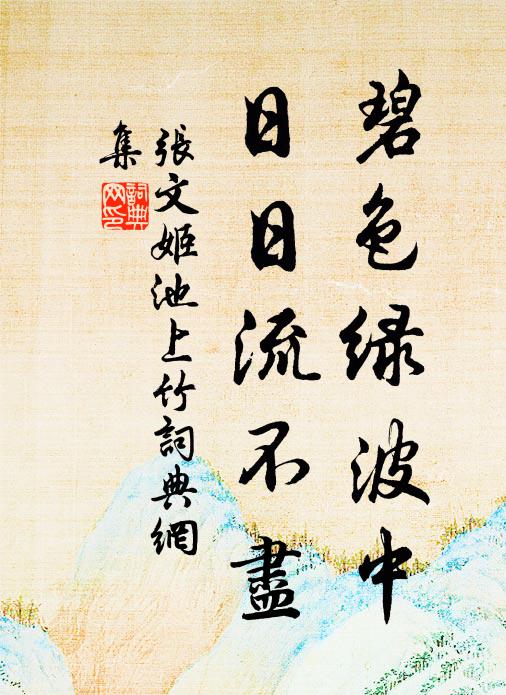 碧色绿波中
日日流不盡
張文姬池上竹詞典網
集
詞典
网印